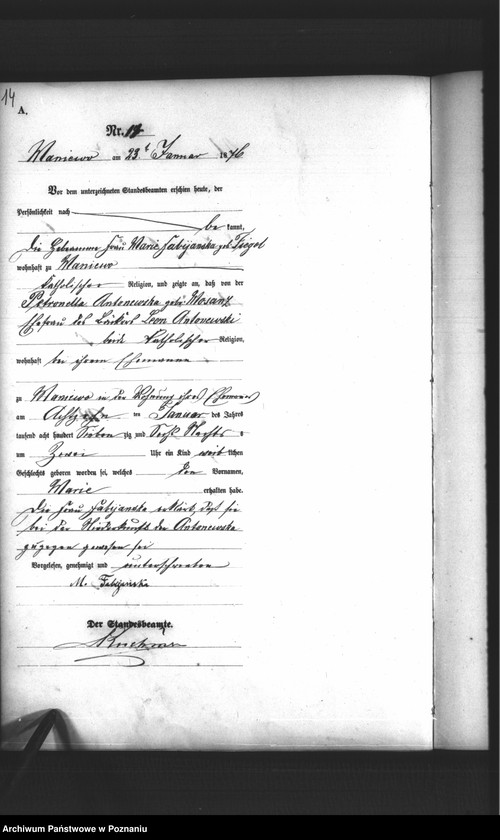 14
A.
Nr. 14
Maniewo am 23t Januar 1876
Vor dem unterzeichneten Standesbeamten erschien heute, der
Persönlichkeit nach
be kannt,
die Hebamme Frau Marie Fabijanska geb.
wohnhaft zu Maniewo
katholischer Religion, und zeigte an, daß von der
Petronella Antonewska geb.
Ehefrau des Leon Antonewski
beide katholischer Religion,
wohnhaft bei ihrem Ehemanne
zu Maniewo in der Wohnung ihres Ehemannes
am Achtzehn ten Januar des Jahres
tausend acht hundert Sieben zig und Sechs Nachts
um Zwei Uhr ein Kind weib lichen
Geschlechts geboren worden sei, welches den Vornamen,
Marie erhalten habe.
Die Frau Fabijanska erklärt, daß sie
bei der Niederkunft der Antonewska
zugegen gewesen sei
Vorgelesen, genehmigt und unterschrieben
M. Fabijanska
Der Standesbeamte.
Archiwum Państwowe w Poznaniu